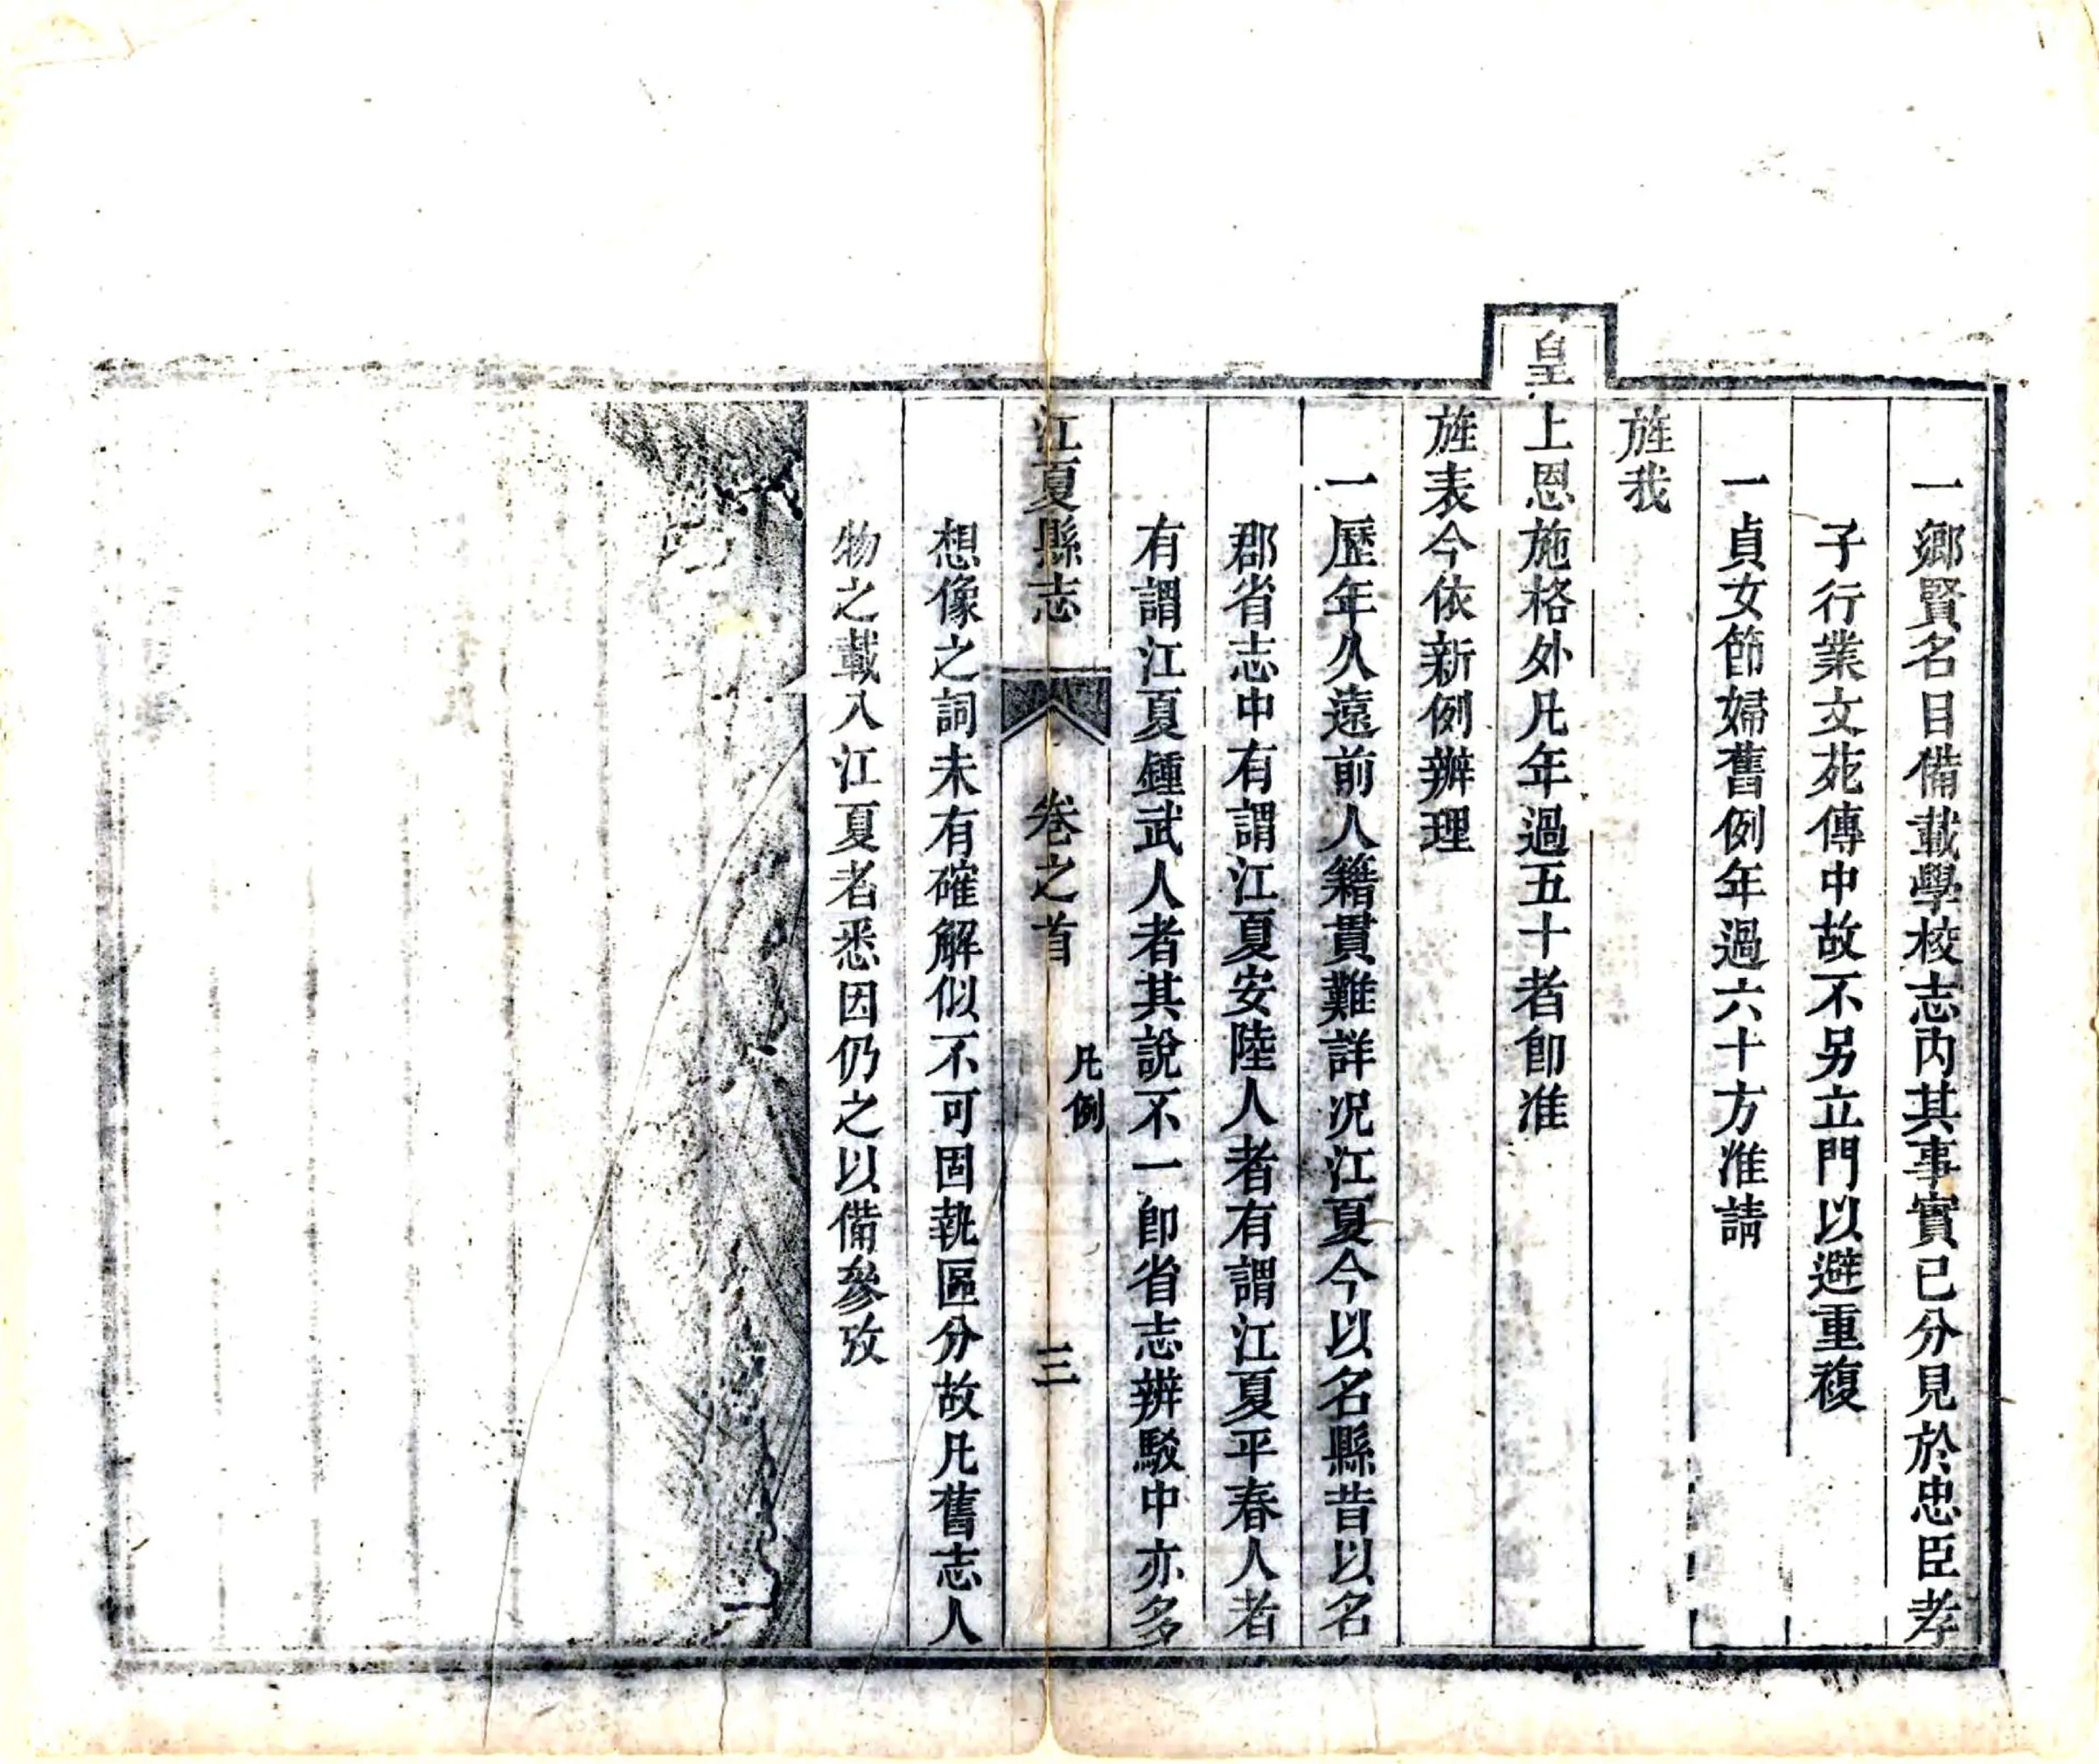 一鄉賢名目備載學校志內其事實已分見於忠臣孝
子行業文苑傳中故不另立門以避重複
一貞女節婦舊例年過六十方准請
旌我
皇上恩施格外凡年過五十者卽准
旌表今依新例辦理
一歷年久遠前人籍貫難詳况江夏今以名縣昔以名
郡省志中有謂江夏安陸人者有謂江夏平春人者
有謂江夏鍾武人者其說不一卽省志辨駁中亦多
江夏縣志 卷之首 凡例 三
想像之詞未有確解似不可固執區分故凡舊志人
物之載入江夏者悉因仍之以備參攷